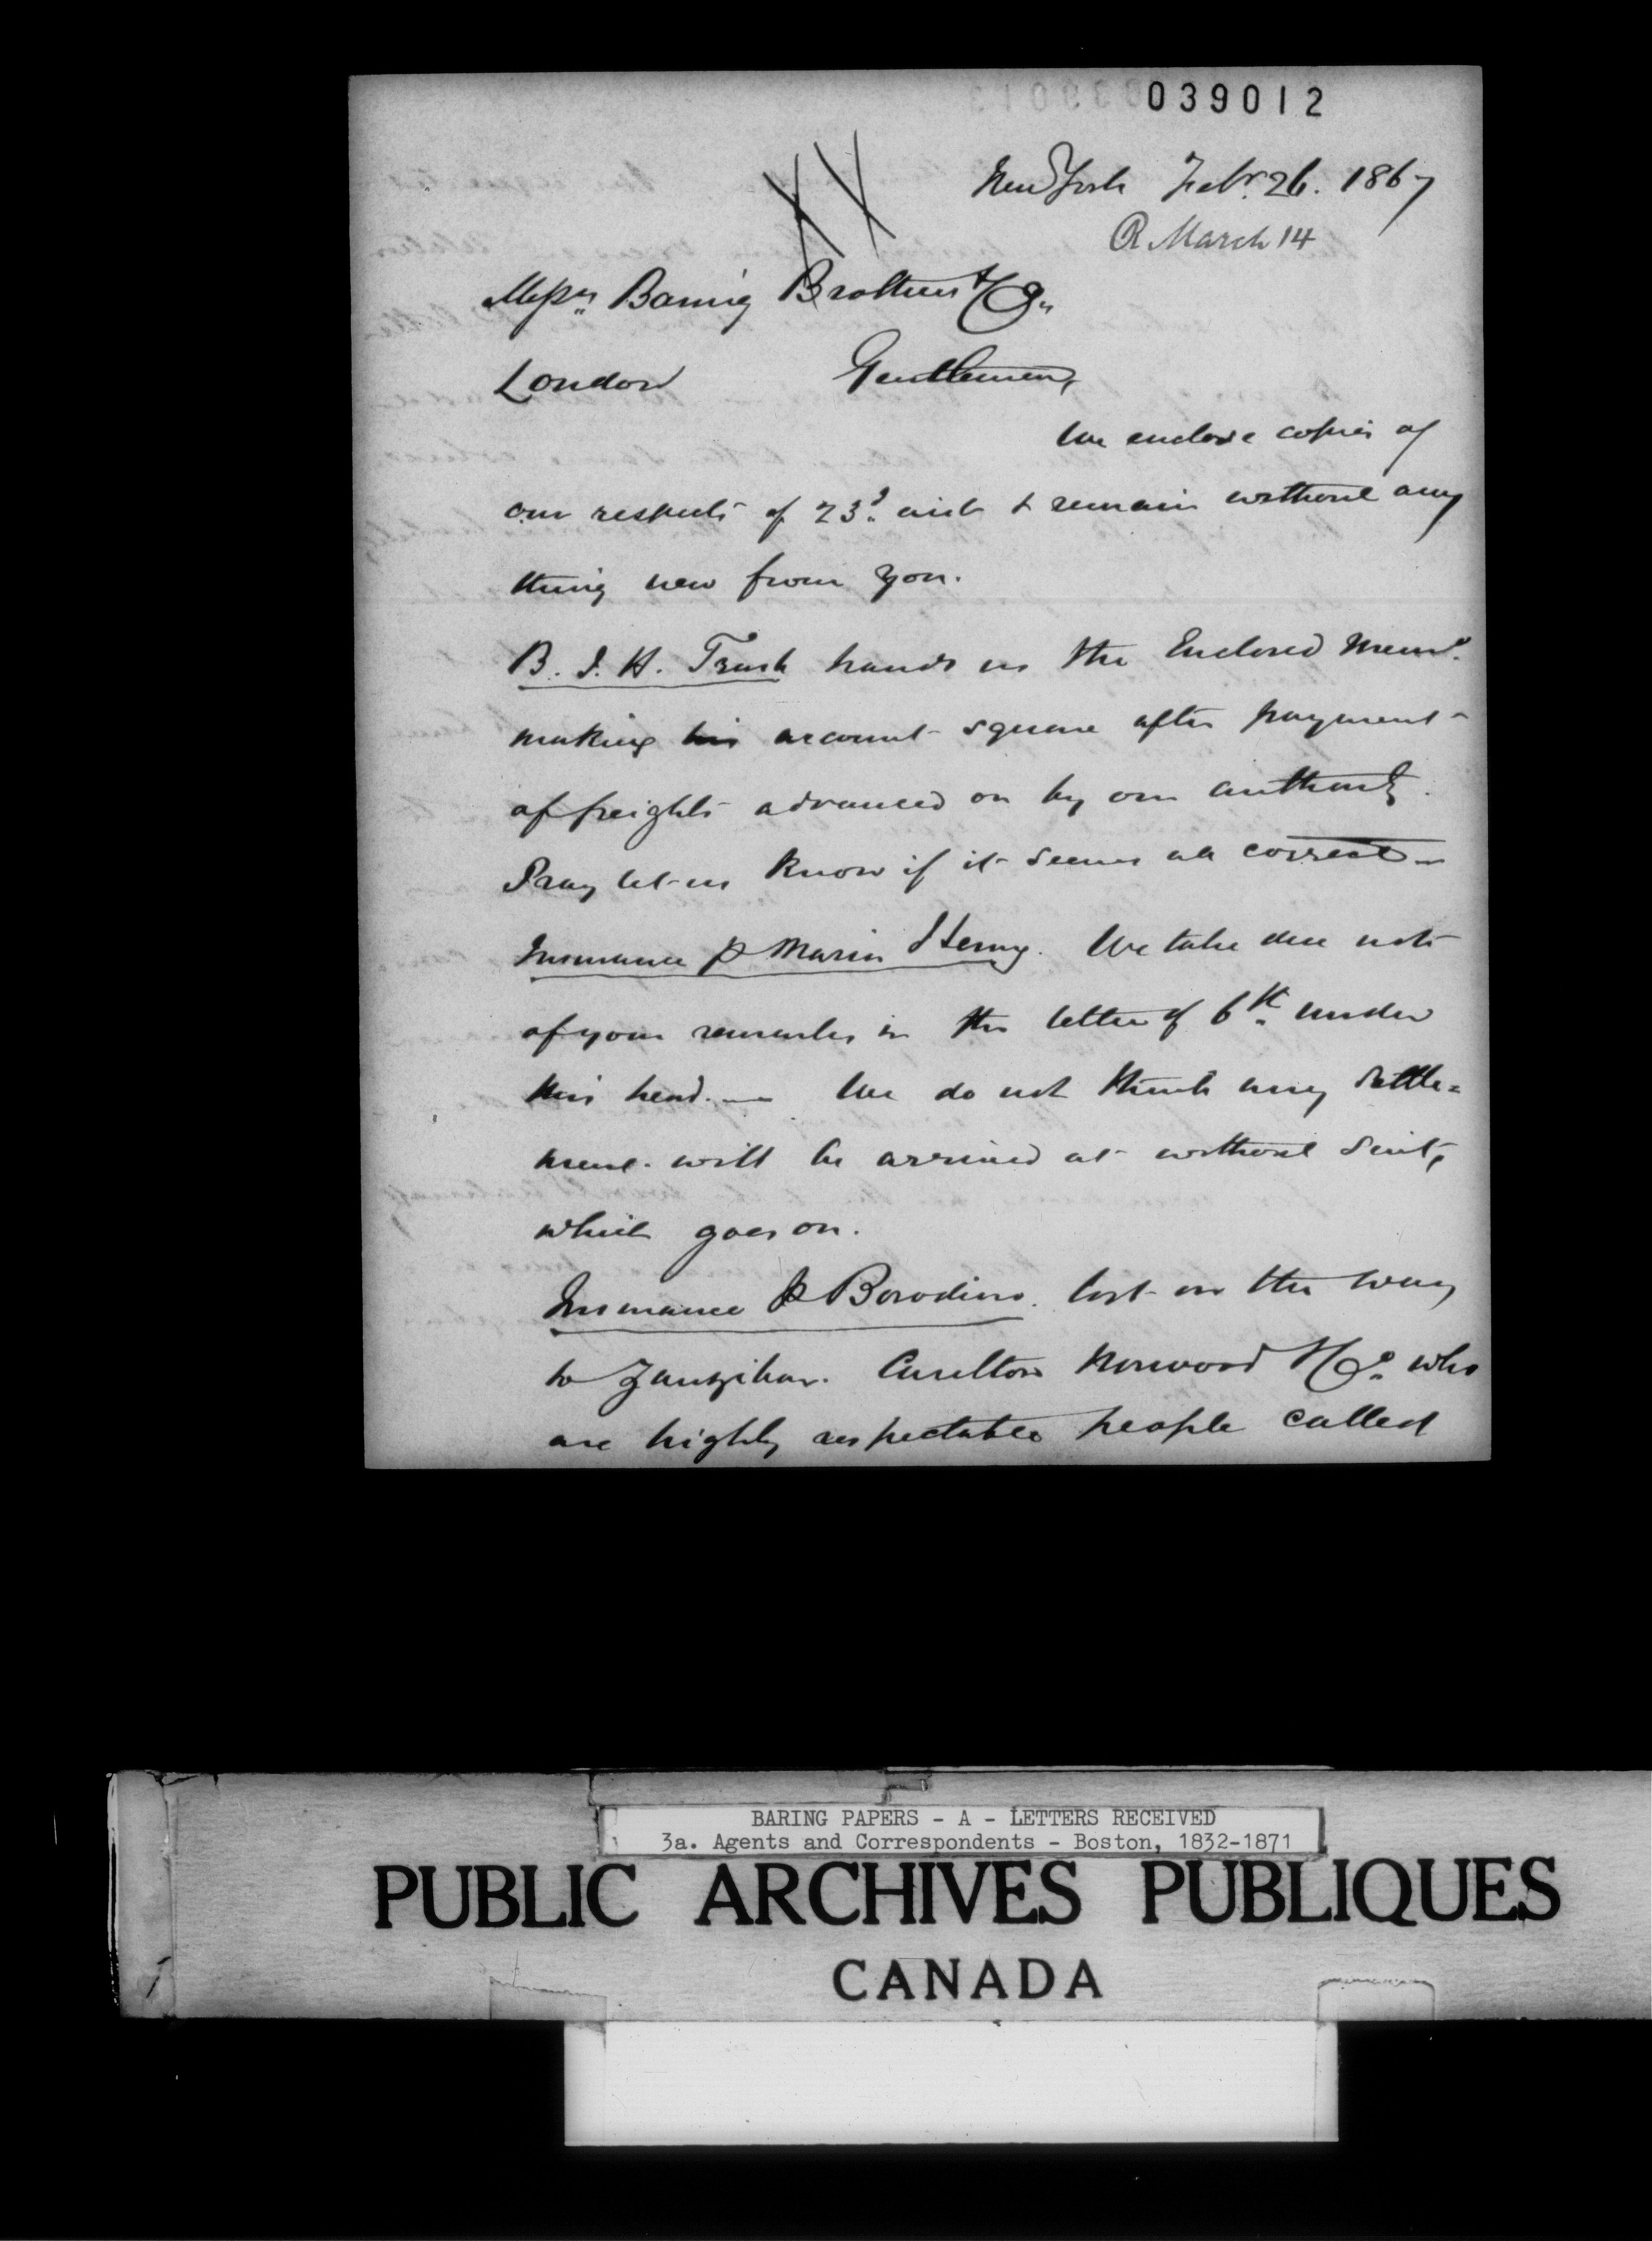 039012
New York Feb.r 26. 1867
R March 14
Messrs Baring Brothers & Co.
London Gentlemen,
We enclose copies of
our respects of 23d inst & remain without any
thing new from you.
B. J. H. Trask hands us the Enclosed Memo.
making his account square after payment
of freights advanced on by our authority.
Pray let us know if it seems all correct —
Insurance p Maria Henry. We take due note
of your remarks in the letter of 6th under
this head. — We do not think any settle=
ment will be arrived at without suit,
which goes on.
Insurance p Borodino. lost on the way
to Zanzibar. Carlton Norwood & Co. who
are highly respectable people called
BARING PAPERS - A - LETTERS RECEIVED
3a. Agents and Correspondents - Boston, 1832-1871
PUBLIC ARCHIVES PUBLIQUES
CANADA